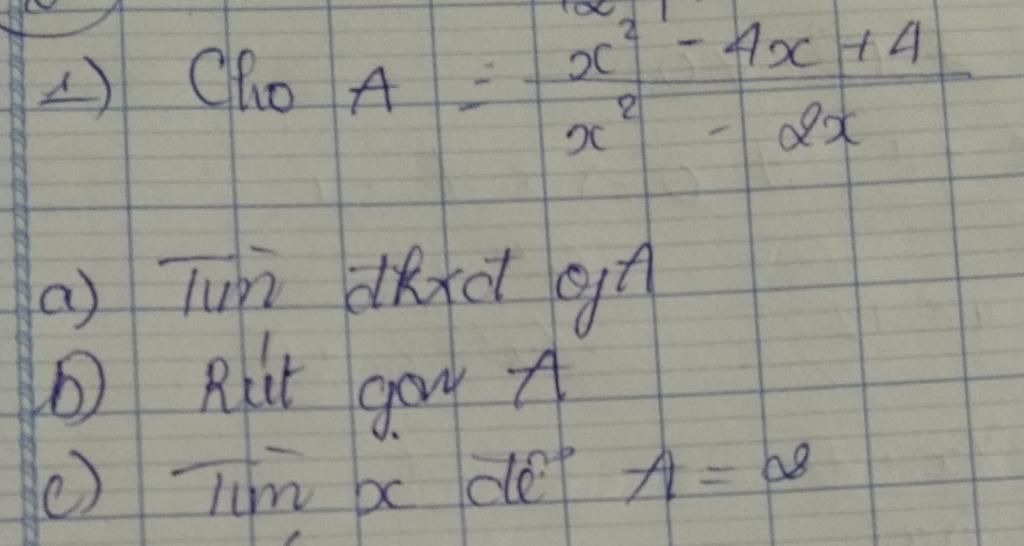 1) Cho A = \frac{x² - 4x + 4}{x² - 2x}
a) Tìm đkxđ of A
b) Rút gọn A
c) Tìm x để A = 2